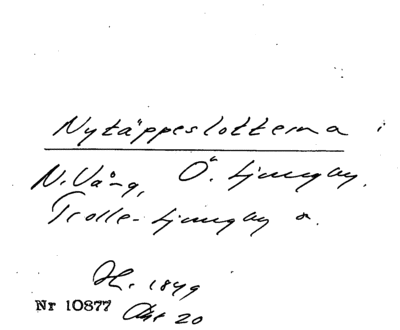 Nytäppeslotterna i
N. Vång, Ö. Ljungby,
Trolle-Ljungby o.
H. 1849
Nr 10877 Akt 20